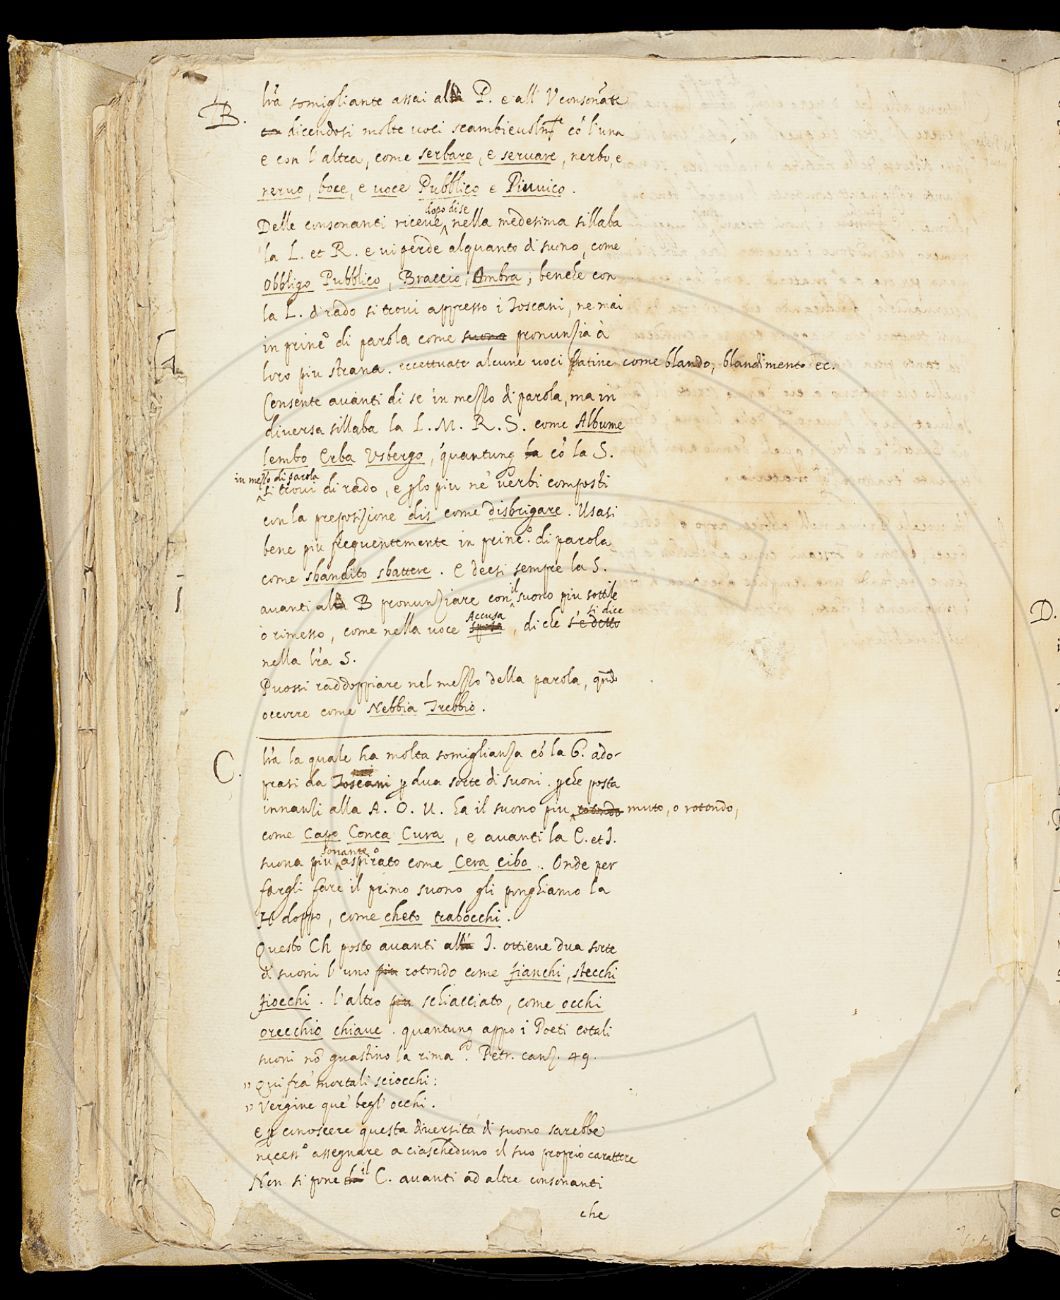 B. lra somigliante assai alla P. e all' V consonante
dicendosi molte voci scambievolmte có l'una
e con l'altra, come serbare, e servare, nerbo, e
nervo, boce, e voce Pubblico e Piuvico.
dopo di se
Delle consonanti riceve nella medesima sillaba
la L. et R. e vi perde alquanto di suono, come
obbligo Pubblico, Braccio, Ambra; benche con
la L. di rado si trovi appresso i Toscani, ne mai
in princo di parola come suona pronunzia à
loro piu strana. eccettuate alcune voci latine come blando, blandimento ec.
Consente avanti di se in mezzo di parola, ma in
diversa sillaba la L. M. R. S. come Albume
lembo Erba Usbergo, quantunq la có la S.
in mezzo di parola
si trovi di rado, e plo piu né verbi composti
con la preposizione dis come disbrigare. Usasi
bene piu frequentemente in princo. di parola
come sbandito sbattere. E deesi sempre la S.
avanti alla B pronunziare con il suono piu sottile
Accusa si dice
ò rimesso, come nella voce sposa, di che s'é detto
nella lra S.
Puossi raddoppiare nel mezzo della parola, qndo
occorre come Nebbia Trebbio.
C. lra la quale ha molta somiglianza có la G. ado-
prasi da Toscani p dua sorte di suoni. pche posta
innanzi alla A. O. U. ha il suono piu rotondo muto, o rotondo,
come Capo Conca Cura, e avanti la E. et I.
sonante o
suona piu aspirato come Cera cibo. Onde per
fargli fare il primo suono gli pnghiamo la
H doppo, come cheto trabocchi.
Questo Ch posto avanti alla I. ottiene dua sorte
di suoni l'uno piu rotondo come fianchi, stecchi
fiocchi. l'altro piu schiacciato, come occhi
orecchio chiave. quantunq appo i Poeti cotali
suoni nó guastino la rima. Petr. canz. 49.
" Qui fra' mortali sciocchi:
" Vergine que' begl' occhi.
e p conoscere questa diversità di suono sarebbe
necesso assegnare a ciascheduno il suo proprio carattere
Non si pone il C. avanti ad altre consonanti
che
D.